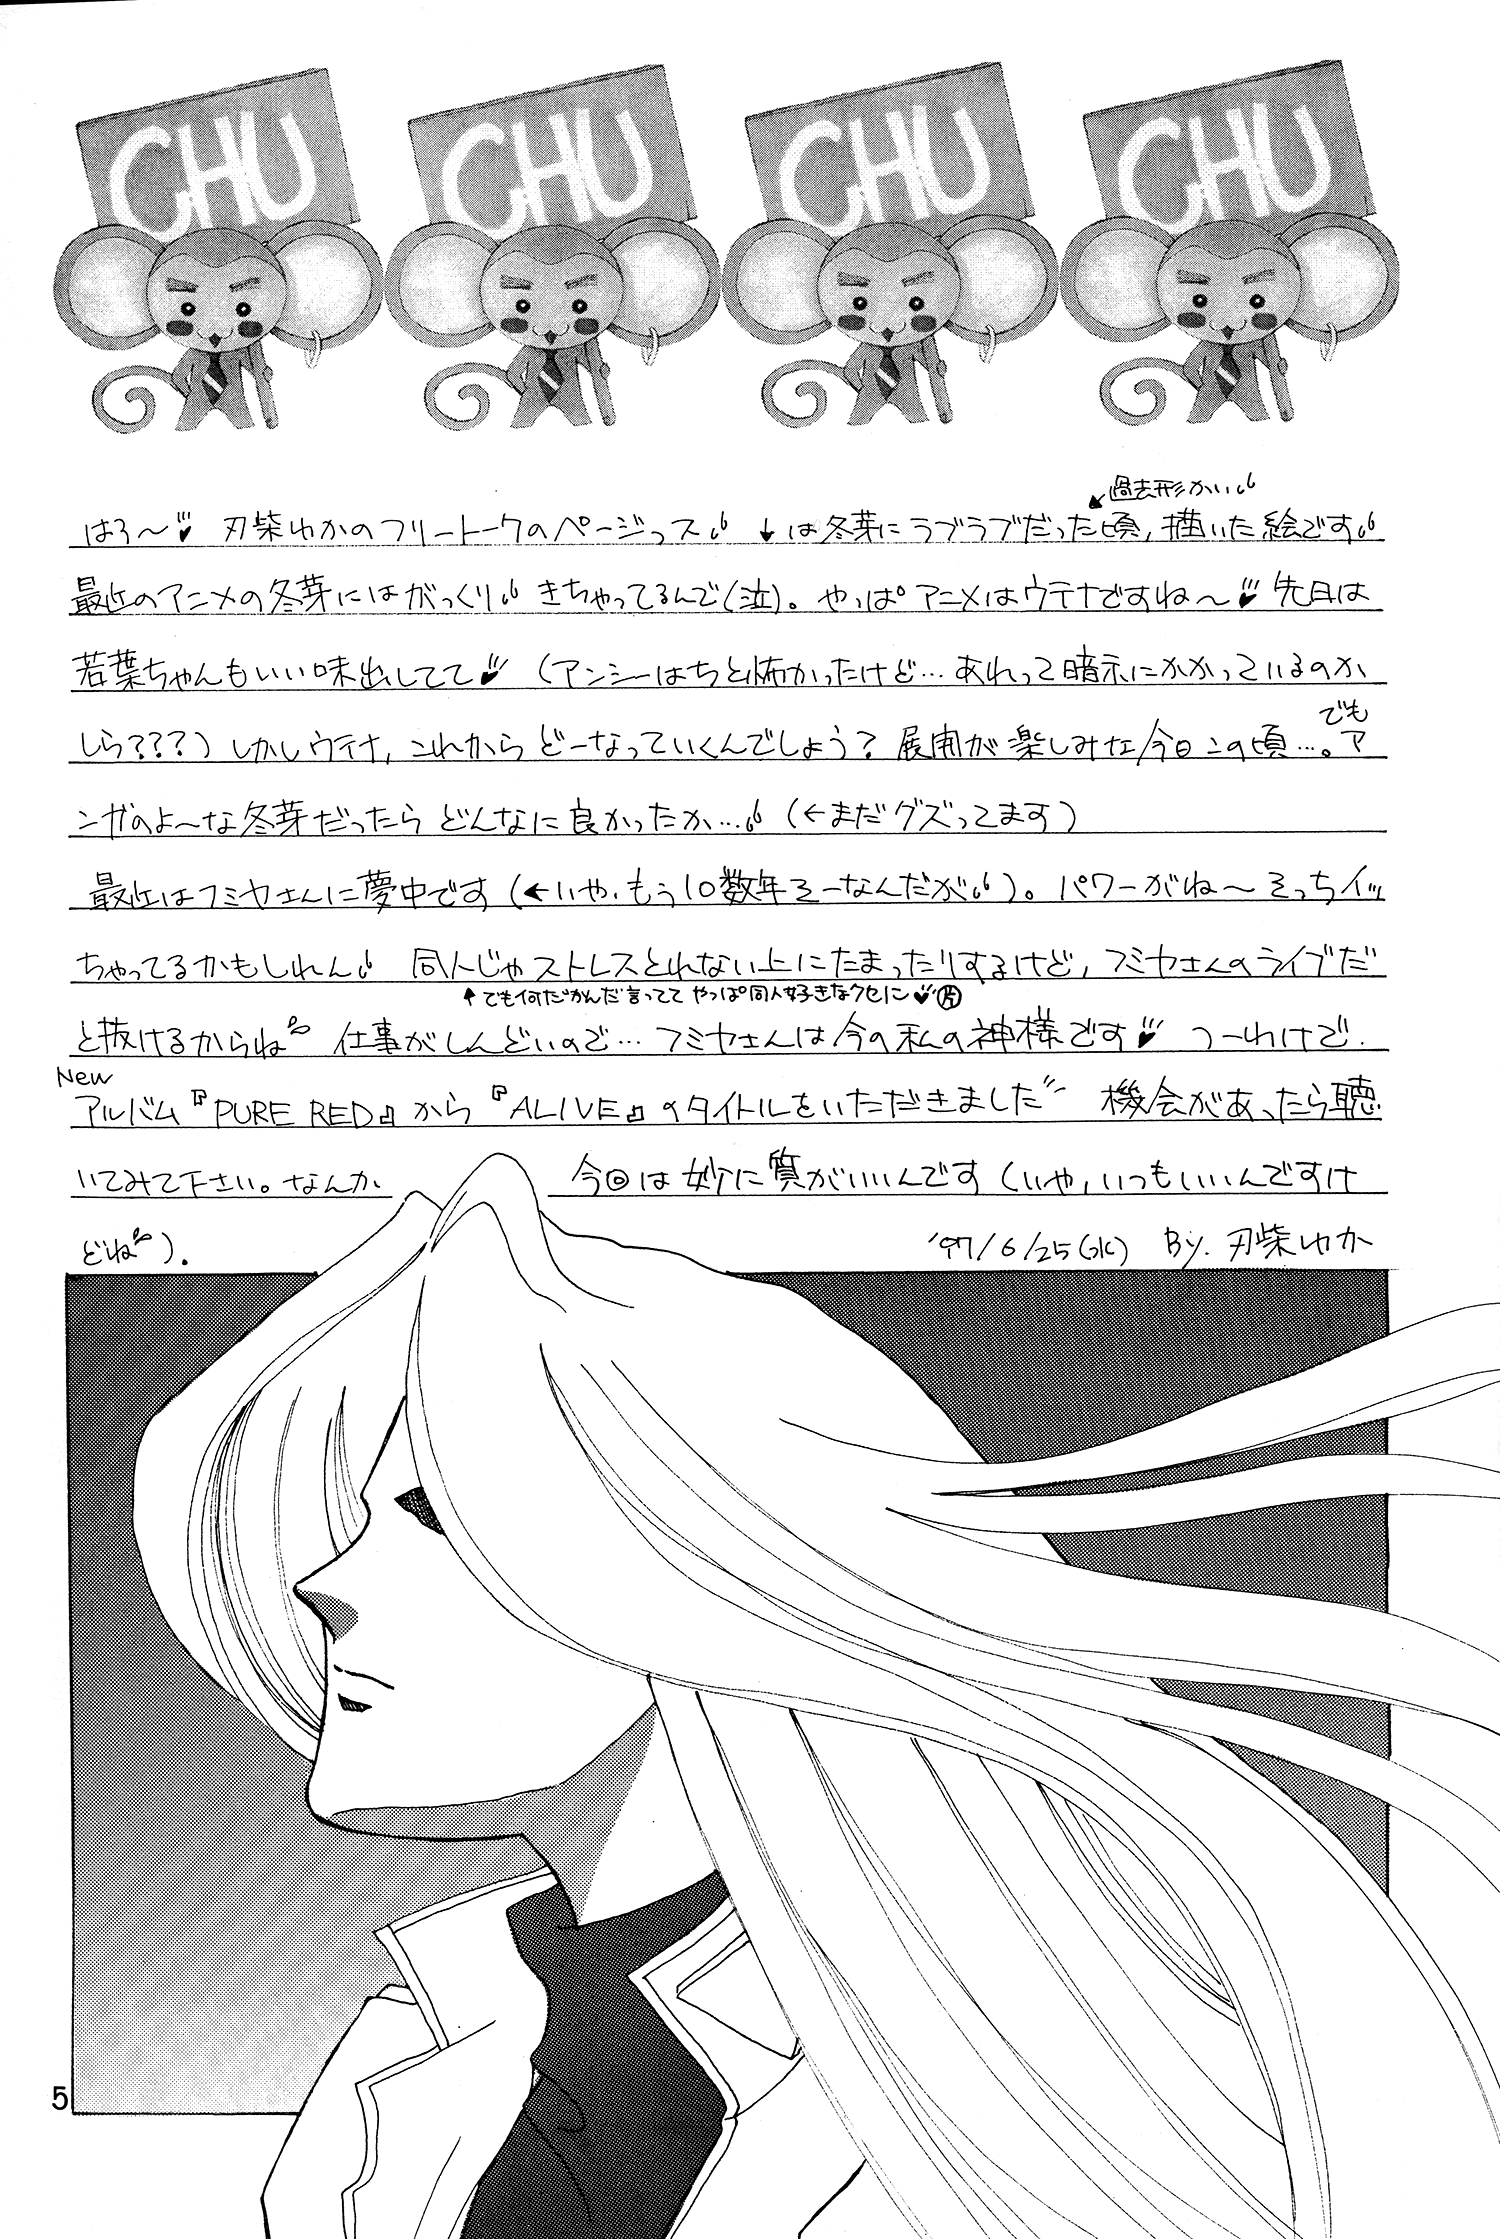 CHU CHU CHU CHU
過去形かい
はろ〜♥ 刃柴ゆかのフリートークのページっス ↓は冬芽にラブラブだった頃,描いた絵です
最近のアニメの冬芽にはがっくり きちゃってるんで(泣)。やっぱ アニメはウテナですね〜♥先日は
若葉ちゃんもいい味出してて♥ (アンシーはちと怖かったけど…あれって暗示にかかっているのか
しら???)しかしウテナ,これから どーなっていくんでしょう? 展開が楽しみな今日この頃…。でもア
ンガのよ〜な冬芽だったら どんなに良かったか… (←まだグズってます)
最近はフミヤさんに夢中です(←いや,もう10数年そーなんだが)。パワーがね〜そっちイッ
ちゃってるかもしれん 同人じゃストレスとれない上にたまったりするけど,フミヤさんのライブだ
↑でも何だかんだ言ってて やっぱ同人好きなクセに♥(片)
と抜けるからね 仕事がしんどいので…フミヤさんは今の私の神様です♥ つーわけで.
New
アルバム『PURE RED』から『ALIVE』のタイトルをいただきました 機会があったら聴
いてみて下さい。なんか 今回は妙に質がいいんです(いや,いつもいいんですけ
どね)。
'97/6/25(水) By.刃柴ゆか
5